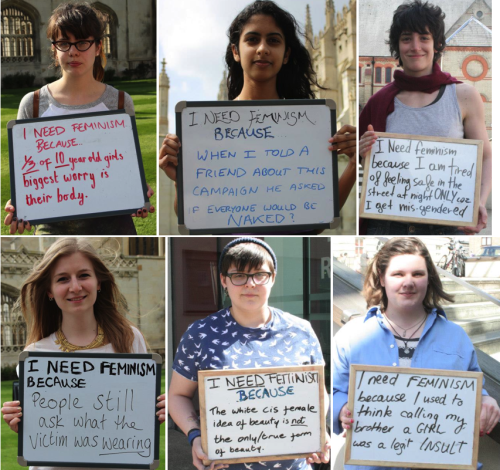 I NEED FEMINISM
BECAUSE...
1/3 of 10 year old girls
biggest worry is
their body.
I NEED FEMINISM
BECAUSE...
WHEN I TOLD A
FRIEND ABOUT THIS
CAMPAIGN HE ASKED
IF EVERYONE WOULD BE
NAKED?
I Need feminism
because I am tired
of feeling safe in the
street at night ONLY coz
I get mis-gendered
I NEED FEMINISM
BECAUSE
People still
ask what the
victim was wearing
I NEED FEMINISM
BECAUSE
The white cis female
idea of beauty is not
the only/true form
of beauty.
I need FEMINISM
because I used to
think calling my
brother a GIRL
was a legit INSULT